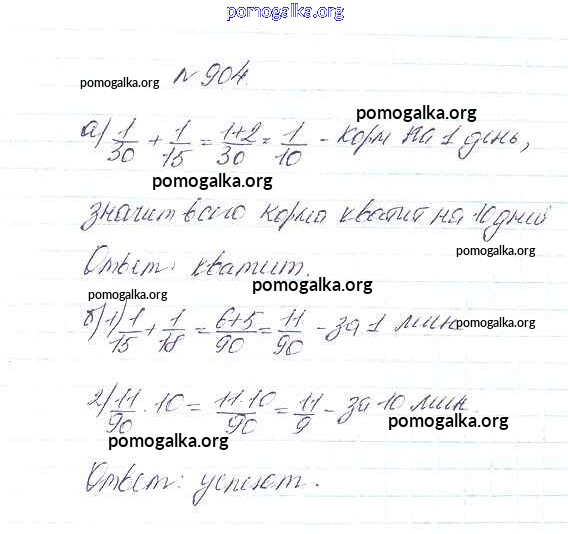 pomogalka.org
pomogalka.org № 904
pomogalka.org
а) 1/30 + 1/15 = (1+2)/30 = 1/10 - корм на 1 день,
pomogalka.org
значит всего корма хватит на 10 дней
pomogalka.org
Ответ: хватит.
pomogalka.org
pomogalka.org
б) 1) 1/15 + 1/18 = (6+5)/90 = 11/90 - за 1 мин
pomogalka.org
2) 11/90 · 10 = (11·10)/90 = 11/9 - за 10 мин.
pomogalka.org
pomogalka.org
Ответ: успеют.
pomogalka.org